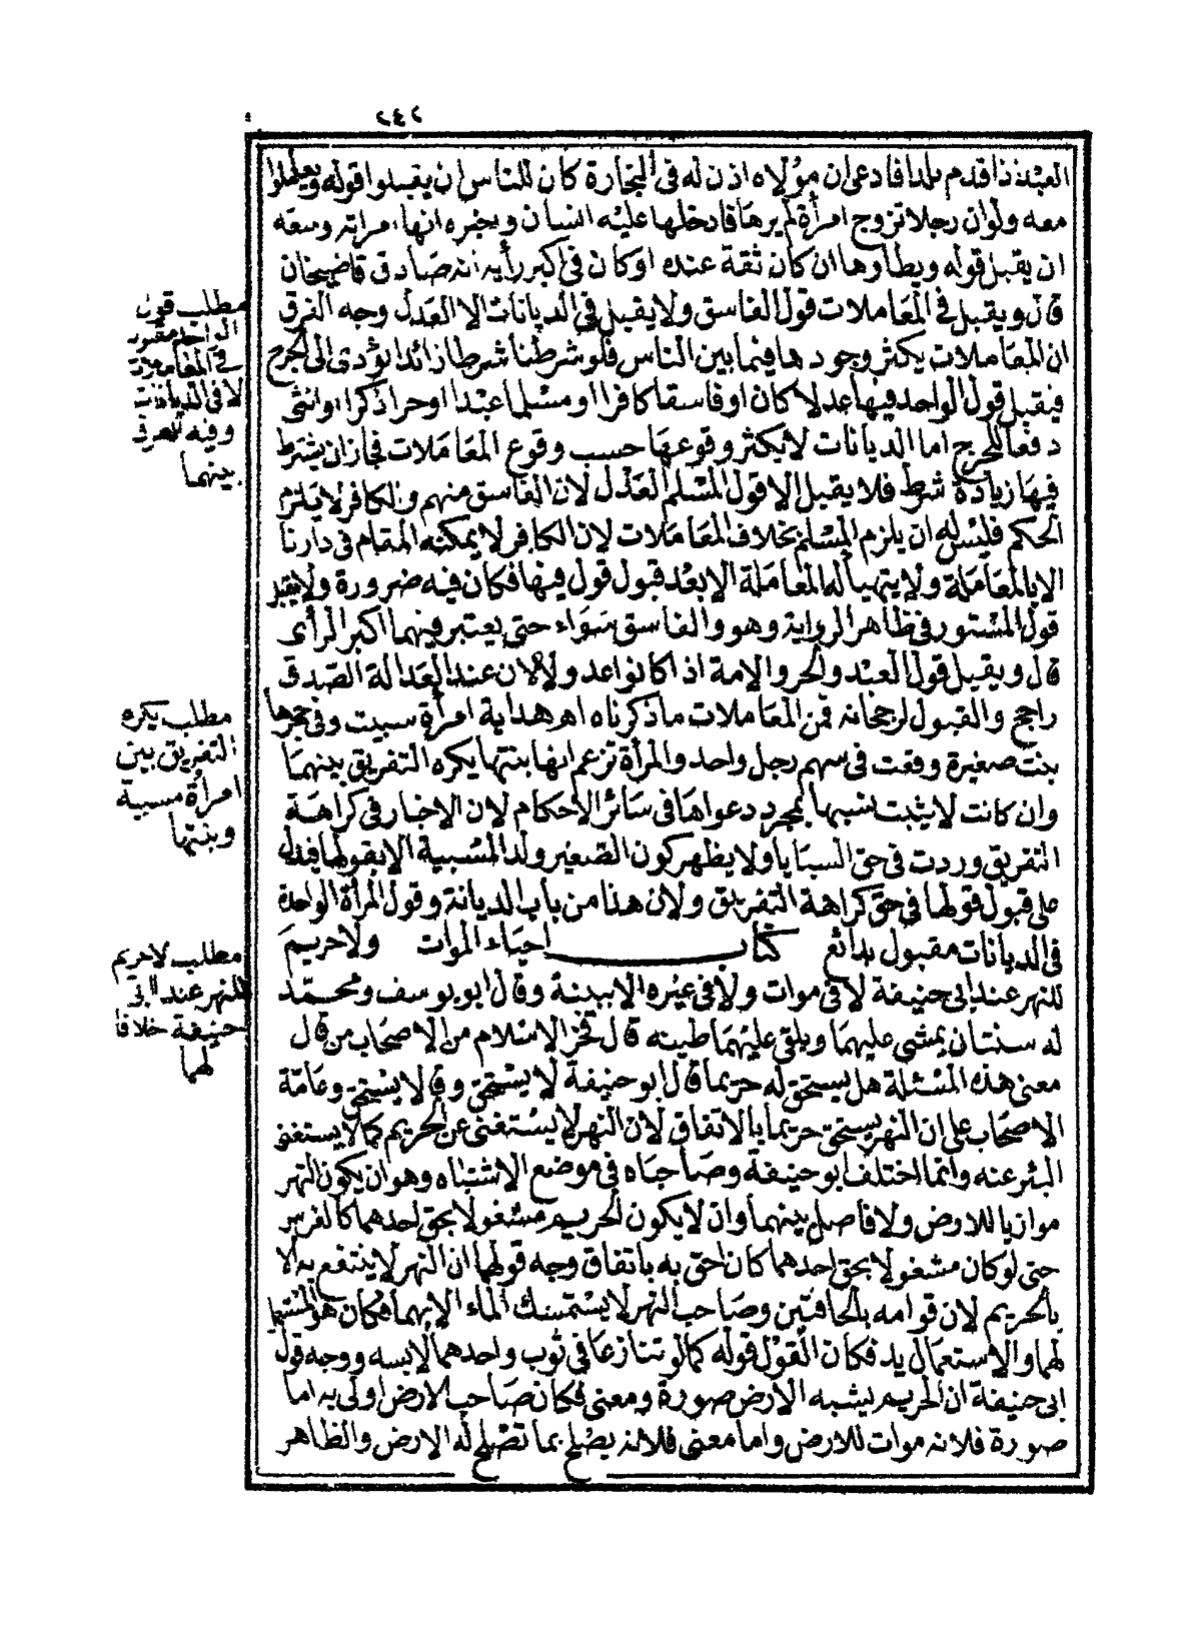 ٢٤٢
العبد اذا قدم بلدا فادعى ان مولاه اذن له فى التجارة كان للناس ان يقبلوا قوله ويعاملوا
معه ولو ان رجلا تزوج امرأة لم يرها فادخلها عليه انسان ويخبره انها امراته وسعه
ان يقبل قوله ويطاوها ان كان ثقة عنده او كان فى اكبر رأيه انه صادق قاضيخان
قال ويقبل فى المعاملات قول الفاسق ولا يقبل فى الديانات الا العدل وجه الفرق
ان المعاملات يكثر وجودها فيما بين الناس فلو شرطنا شرطا زائدا يؤدى الى الحرج
فيقبل قول الواحد فيها عدلا كان او فاسقا كافرا او مسلما عبدا او حرا ذكرا او انثى
دفعا للحرج اما الديانات لا يكثر وقوعها حسب وقوع المعاملات فجاز ان يشترط
فيها زيادة شرط فلا يقبل الا قول المسلم العدل لان الفاسق متهم والكافر لا يلتزم
الحكم فليس له ان يلزم المسلم بخلاف المعاملات لان الكافر لا يمكنه المقام فى دارنا
الا بالمعاملة ولا يتهيأ له المعاملة الا بعد قبول قول فيها فكان فيه ضرورة ولا يقبل
قول المستور فى ظاهر الرواية وهو والفاسق سواء حتى يعتبر فيهما اكبر الرأى
قال ويقبل قول العبد والحر والامة اذا كانوا عدولا لان عند العدالة الصدق
راجح والقبول لرجحانه فمن المعاملات ما ذكرناه اهر هداية امرأة سبيت وفى حجرها
بنت صغيرة وقعت فى سهم رجل واحد والمرأة تزعم انها بنتها يكره التفريق بينهما
وان كانت لا يثبت نسبها بمجرد دعواها فى سائر الاحكام لان الاخبار فى كراهة
التفريق وردت فى حق السبايا ولا يظهر كون الصغير ولد المسبية الا بقولها فيدل
على قبول قولها فى حق كراهة التفريق ولان هذا من باب الديانة وقول المرأة الواحدة
فى الديانات مقبول بدائع كتاب احياء الموات ولا حريم
للنهر عند ابى حنيفة لا فى موات ولا فى غيره الا ببينة وقال ابو يوسف ومحمد
له مسنتان يمشى عليهما ويلقى عليهما طينه قال فخر الاسلام من الاصحاب من قال
معنى هذه المسئلة هل يستحق له حريما قال ابو حنيفة لا يستحق وقالا يستحق وعامة
الاصحاب على ان النهر يستحق حريما بالاتفاق لان النهر لا يستغنى عن الحريم كما لا يستغنى
البئر عنه وانما اختلف ابو حنيفة وصاحباه فى موضع الاشتباه وهو ان يكون النهر
موازيا للارض ولا فاصل بينهما وان لا يكون الحريم مشغولا بحق احدهما كالغرس
حتى لو كان مشغولا بحق احدهما كان احق به باتفاق وجه قولهما ان النهر لا ينتفع به الا
بالحريم لان قوامه بالحافتين وصاحب النهر لا يستمسك الماء الا بهما فكان هو المستعمل
لهما والاستعمال يد فكان القول قوله كما لو تنازعا فى ثوب واحدهما لابسه ووجه قول
ابى حنيفة ان الحريم يشبه الارض صورة ومعنى فكان صاحب الارض اولى به اما
صورة فلانه موات للارض واما معنى فلانه يصلح بما تصلح له الارض والظاهر
مطلب قول
الواحد مقبول
فى المعاملات
لا فى الديانات
وفيه الفرق
بينهما
مطلب يكره
التفريق بين
امرأة مسبية
وبنتها
مطلب لا حريم
للنهر عند ابى
حنيفة خلافا
لهما